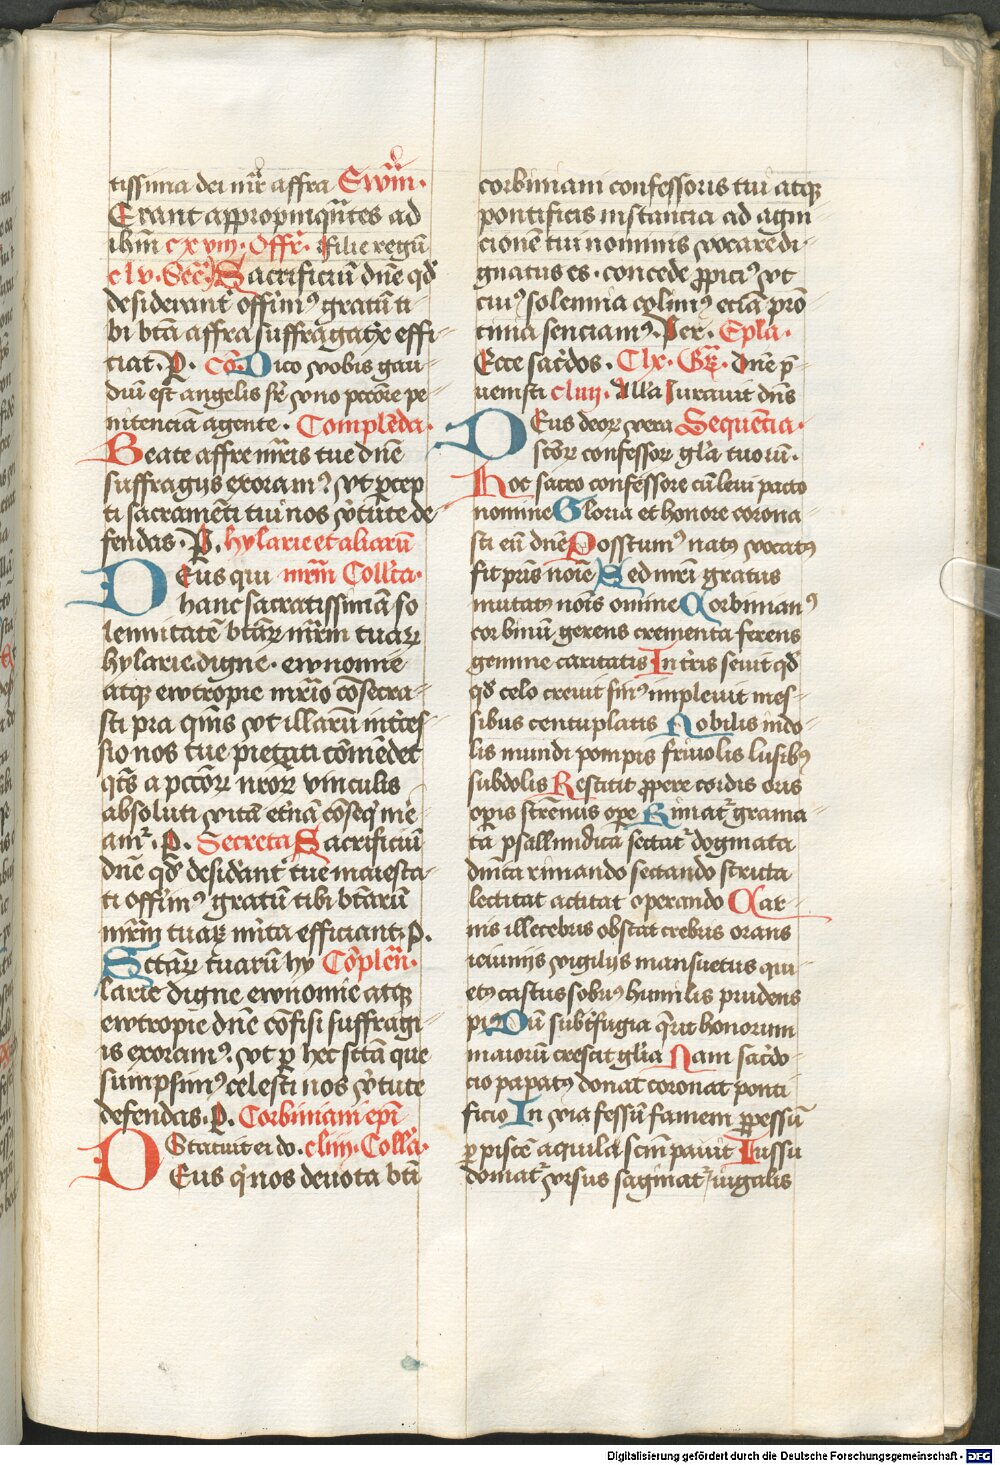 tissima dei mr̄ affra Ewm̄.
Erant appropinqn̄tes ad
ihm̄ cxviij. Offr̄. Filie regū
clv. Secr̄ Sacrificiū dn̄e qd̄
desiderant offim⁹ gratū ti
bi btā affra suffragatrix effi
ciat. P. Cō. Dico vobis gau
diū est angelis sr̄ vno pctōre pe
nitenciā agente. Complēda.
Beate affre mr̄is tue dn̄e
suffragijs exoram⁹ vt p̄cep
ti sacramēti tui nos v̄tute de
fendas. P. hylarie et aliarū
DEus qui mr̄m Collc̄a.
hanc sacratissimā so
lemnitatē btāꝝ mr̄m tuaꝝ
hylarie digne. ewnomie
atqꝫ ewtropie mr̄io cōsecra
sti pr̄a qm̄s vt illarū int̄ces
sio nos tue pietati cōmēdet
qt̄s a pctōꝝ nr̄oꝝ vinculis
absoluti vitā et̄nā cōseq̄ me
amr̄. P. Secreta Sacrificiū
dn̄e qd̄ desid̄ant tue maiesta
ti offim⁹ gratū tibi btārū
mr̄m tuaꝝ mīta efficiant. P.
Sctāꝝ tuarū hy Cōplen̄.
larie digne ewnomie atqꝫ
ewtropie dn̄e cōfisi suffragi
is exoram⁹ vt p hec sctā que
sumpsim⁹ celesti nos v̄tute
defendas. P. Corbiniani ep̄i
Statuit ei do. cliij. Collc̄a.
DEus q̄ nos deuota btī
corbiniani confessoris tui atqꝫ
pontificis instancia ad agni
cionem tui nominis vocare di
gnatus es. concede ꝓpici⁹ vt
cui⁹ solennia colim⁹ eciā pro
tinia senciam⁹. Per. Epl̄a.
Ecce sac̄dos. Clx. Gr̄. Dn̄e p̄
uenisti cliiij. All̄a Iurauit dn̄s
DEus deoꝝ vera Sequētia.
sctōꝝ confessoꝝ gl̄a tuorū.
Hoc sacro confessore cū leui pacto
nomine Gloria et honore corona
sti eū dn̄e Posstum⁹ nat⁹ vocat⁹
fit pr̄is noīe Sed mr̄i gratus
mutat⁹ nōis omine Corbinian⁹
corbinū gerens crementa ferens
gemine caritatis In tr̄is seuit qd̄
qd̄ celo creuit sin⁹ impleuit mes
sibus centuplatis Nobilis indo
lis mundi pompis friuolis lusib⁹
subdolis Restitit ꝓpere cordis oris
opis strēnus ope Rimat̄ grama
ta psallmidicā sectat̄ dogmata
diuīta rimando sectando stricta
lectitat actitat operando Car
nis illecebris obstat crebris orans
ieiunijs vigilijs mansuetus qui
et⁹ castus sobri⁹ humilis prudens
pi⁹ Dū subt̄fugia q̄rit honorum
maiorū crescit gl̄ia Nam sac̄do
cio papat⁹ donat coronat ponti
ficio In via fessū famem ꝑpessū
ꝑ piscē aquila scīm pauit Iussu
domat̄ vrsus saginat̄ iugalis
Digitalisierung gefördert durch die Deutsche Forschungsgemeinschaft - DFG